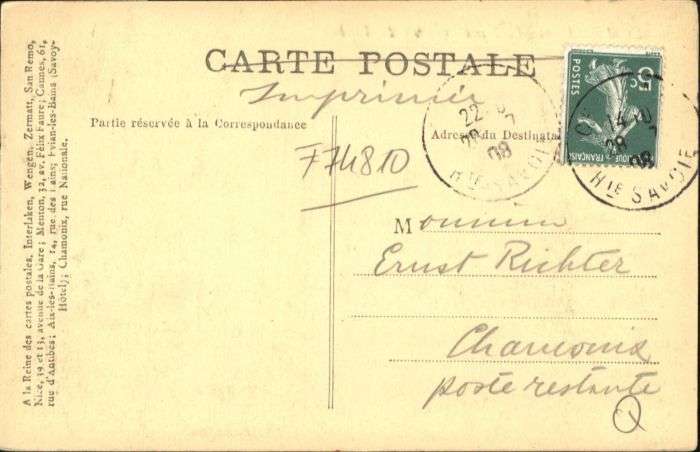 CARTE POSTALE
Imprimée
Partie réservée à la Correspondance
Adresse du Destinata
F74810
Monsieur
Ernst Richter
Chamonix
poste restante
Q
A la Reine des cartes postales, Interlaken, Wengen, Zermatt, San Remo,
Nice, 39 et 13, avenue de la Gare; Menton, 32, av. Félix Faure; Cannes, 61,
rue d'Antibes; Aix-les-Bains, 14, rue des Bains; Evian-les-Bains (Savoy-
Hôtel); Chamonix, rue Nationale.
22
08
HTE SAVOIE
5c
POSTES
QUE FRANÇAISE
14
08
HTE SAVOIE